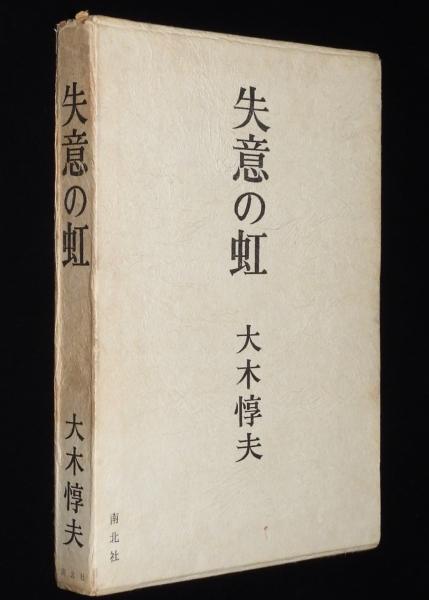 失意の虹
大木惇夫
南北社
失意の虹
大木惇夫
南北社